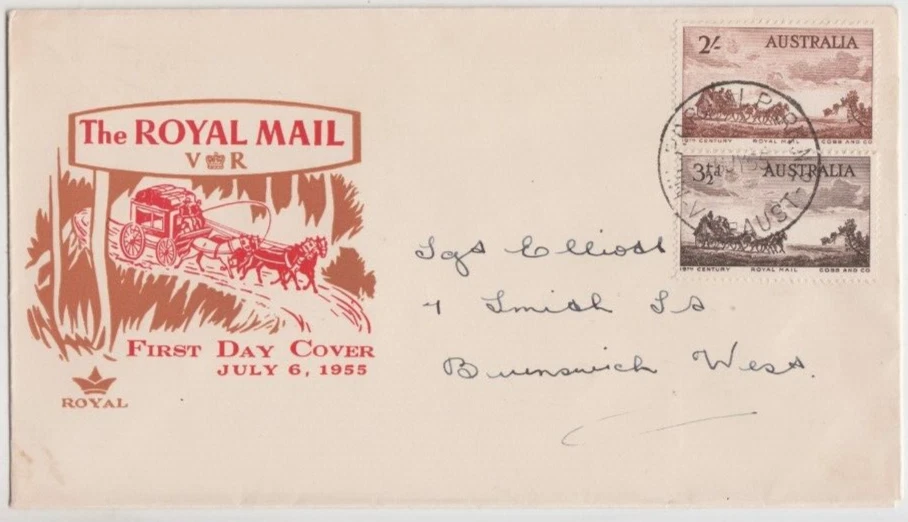 The ROYAL MAIL
V R
FIRST DAY COVER
JULY 6, 1955
ROYAL
2/- AUSTRALIA
19TH CENTURY ROYAL MAIL COBB AND CO
3½d AUSTRALIA
19TH CENTURY ROYAL MAIL COBB AND CO
AUST
Sgt Elliott
4 Smith St
Brunswick West.